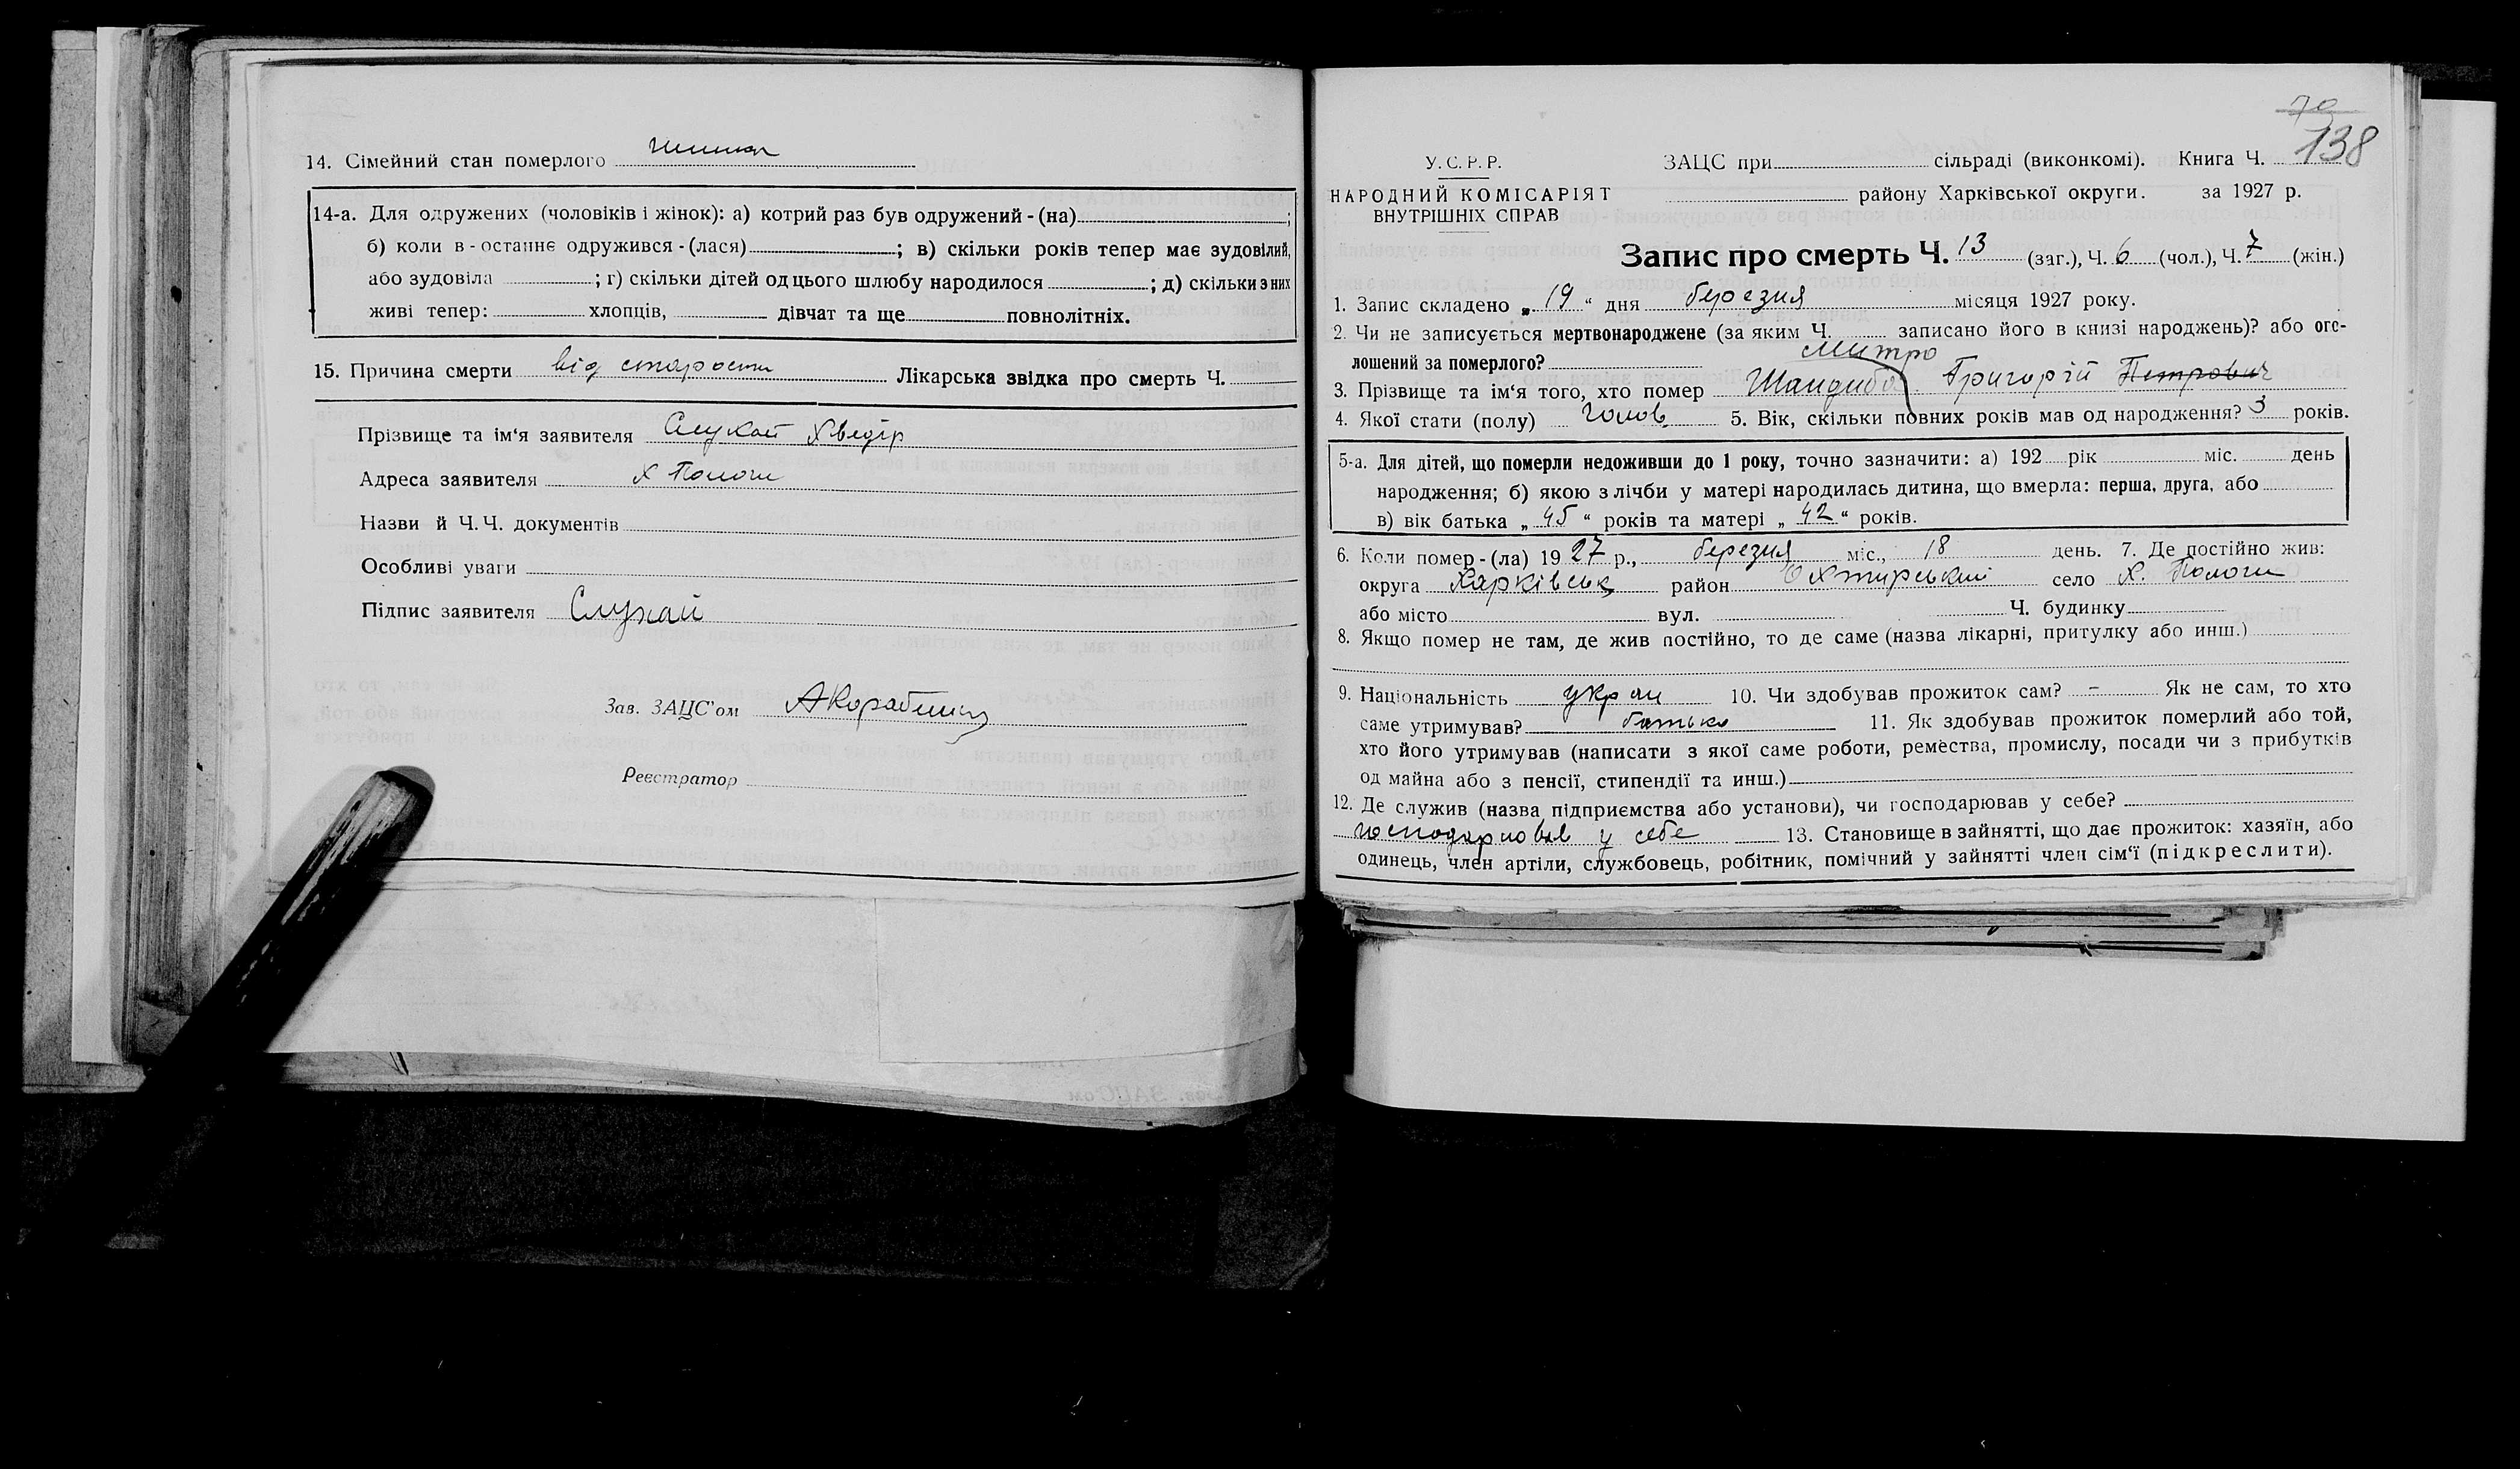 14. Сімейний стан померлого
14-а. Для одружених (чоловіків і жінок): а) котрий раз був одружений - (на) ;
б) коли в - останнє одружився - (лася) ; в) скільки років тепер має зудовілий,
або зудовіла ; г) скільки дітей од цього шлюбу народилося ; д) скільки з них
живі тепер: хлопців, дівчат та ще повнолітніх.
15. Причина смерти від старости Лікарська звідка про смерть Ч.
Прізвище та ім‘я заявителя Слухай Хведір
Адреса заявителя х Пологи
Назви й Ч. Ч. документів
Особливі уваги
Підпис заявителя Слухай
Зав. ЗАЦС'ом
Реєстратор
70
138
У. С. Р. Р. ЗАЦС при сільраді (виконкомі). Книга Ч.
НАРОДНИЙ КОМІСАРІЯТ району Харківської округи. за 1927 р.
ВНУТРІШНІХ СПРАВ
Запис про смерть Ч. 13 (заг.), Ч. 6 (чол.), Ч. 7 (жін.)
1. Запис складено „ 19 “ дня березня місяця 1927 року.
2. Чи не записується мертвонароджене (за яким Ч. записано його в книзі народжень)? або ого-
лошений за померлого?
Митро
3. Прізвище та ім‘я того, хто помер Шандиба Григорій Петрович
4. Якої стати (полу) Чолов 5. Вік, скільки повних років мав од народження? 3 років.
5-а. Для дітей, що померли недоживши до 1 року, точно зазначити: а) 192 рік міс. день
народження; б) якою з лічби у матері народилась дитина, що вмерла: перша, друга, або
в) вік батька „ 45 “ років та матері „ 42 “ років.
6. Коли помер - (ла) 19 27 р., березня міс., 18 день. 7. Де постійно жив:
округа Харківськ район Охтирський село Х. Пологи
або місто вул. Ч. будинку
8. Якщо помер не там, де жив постійно, то де саме (назва лікарні, притулку або инш.)
9. Національність україн 10. Чи здобував прожиток сам? – Як не сам, то хто
саме утримував? батько 11. Як здобував прожиток померлий або той,
хто його утримував (написати з якої саме роботи, ремества, промислу, посади чи з прибутків
од майна або з пенсії, стипендії та инш.)
12. Де служив (назва підприємства або установи), чи господарював у себе?
господарював у себе 13. Становище в зайнятті, що дає прожиток: хазяїн, або
одинець, член артіли, службовець, робітник, помічний у зайнятті член сім‘ї (підкреслити).